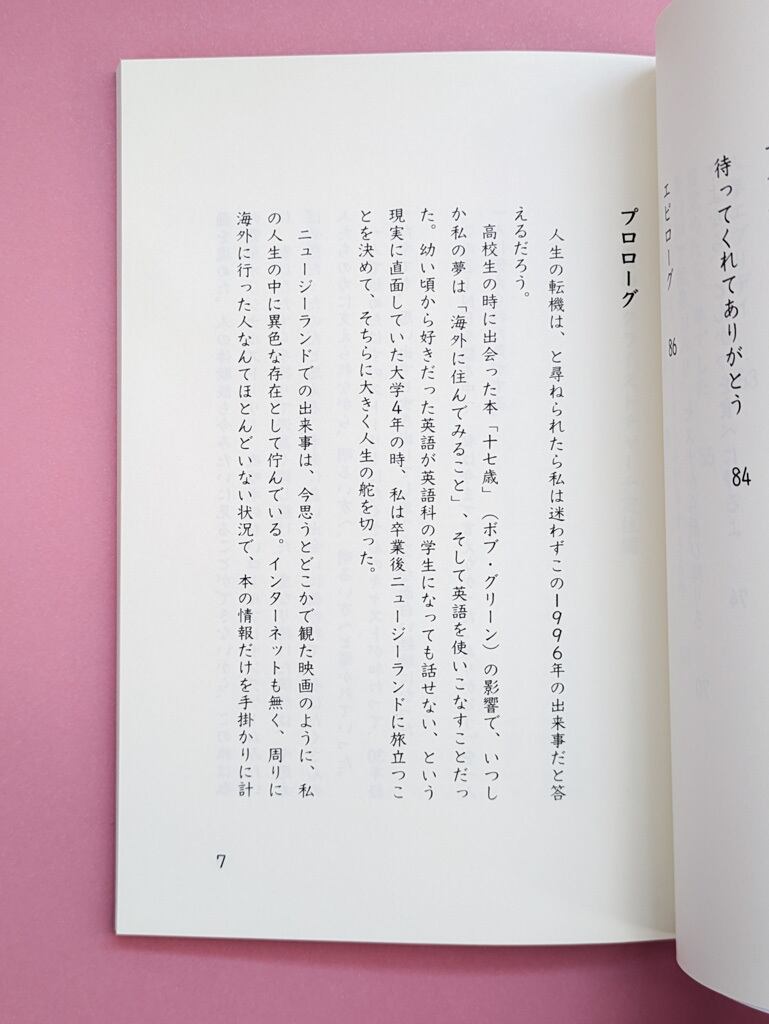 待ってくれてありがとう 84
エピローグ 86
プロローグ
人生の転機は、と尋ねられたら私は迷わずこの1996年の出来事だと答
えるだろう。
高校生の時に出会った本「十七歳」（ボブ・グリーン）の影響で、いつし
か私の夢は「海外に住んでみること」、そして英語を使いこなすことだっ
た。幼い頃から好きだった英語が英語科の学生になっても話せない、という
現実に直面していた大学4年の時、私は卒業後ニュージーランドに旅立つこ
とを決めて、そちらに大きく人生の舵を切った。
ニュージーランドでの出来事は、今思うとどこかで観た映画のように、私
の人生の中に異色な存在として佇んでいる。インターネットも無く、周りに
海外に行った人なんてほとんどいない状況で、本の情報だけを手掛かりに計
7